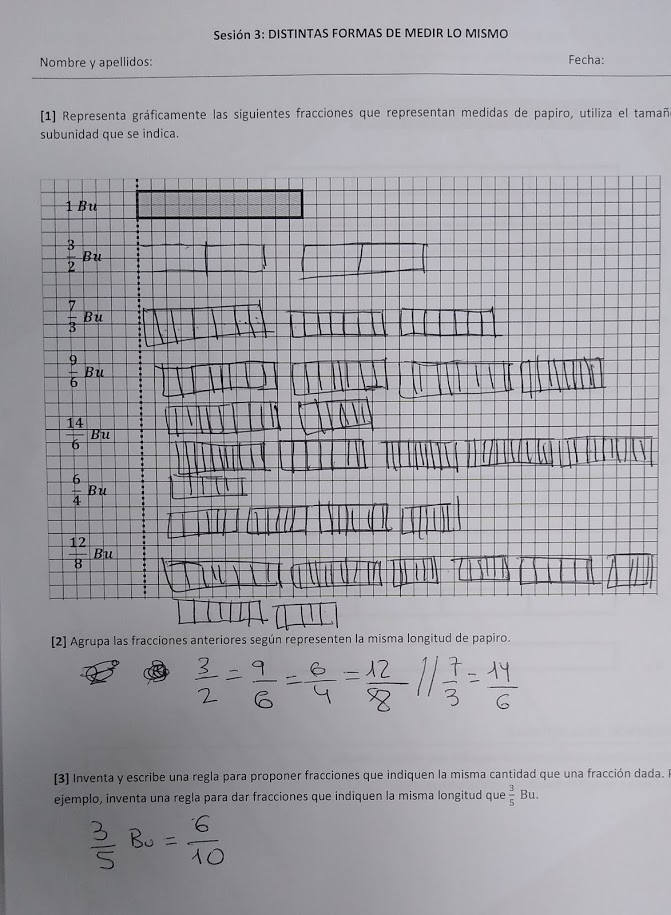 Sesión 3: DISTINTAS FORMAS DE MEDIR LO MISMO
Nombre y apellidos: Fecha:
[1] Representa gráficamente las siguientes fracciones que representan medidas de papiro, utiliza el tamañ
subunidad que se indica.
1 Bu
3/2 Bu
7/3 Bu
9/6 Bu
14/6 Bu
6/4 Bu
12/8 Bu
[2] Agrupa las fracciones anteriores según representen la misma longitud de papiro.
3/2 = 9/6 = 6/4 = 12/8 // 7/3 = 14/6
[3] Inventa y escribe una regla para proponer fracciones que indiquen la misma cantidad que una fracción dada.
ejemplo, inventa una regla para dar fracciones que indiquen la misma longitud que 3/5 Bu.
3/5 Bu = 6/10